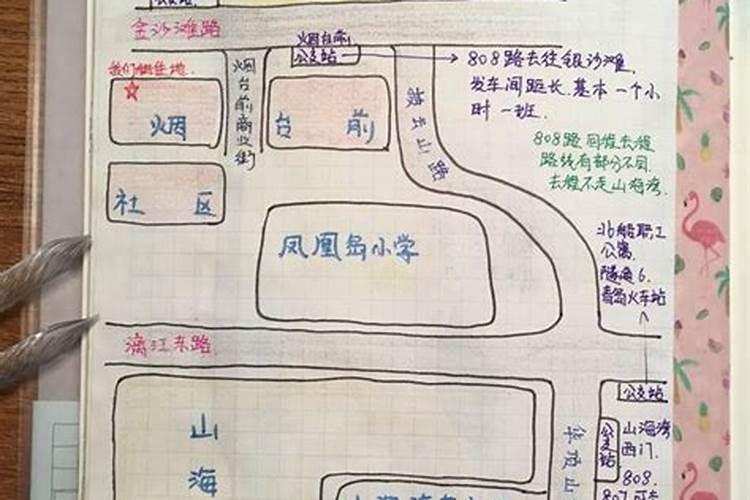 金沙滩路
烟台前
公交站
808路去往银沙滩.
发车间距长.基本一个小
时一班.
我们住
烟台前商业街
烟 台 前
社 区
山路
808路回程去程
路线有部分不同.
去程不走山海湾.
凤凰岛小学
北船职工
公寓.
隧道6.
青岛火车站
漓江东路
公交站
山
海
公交站
山海湾
西门.
808.